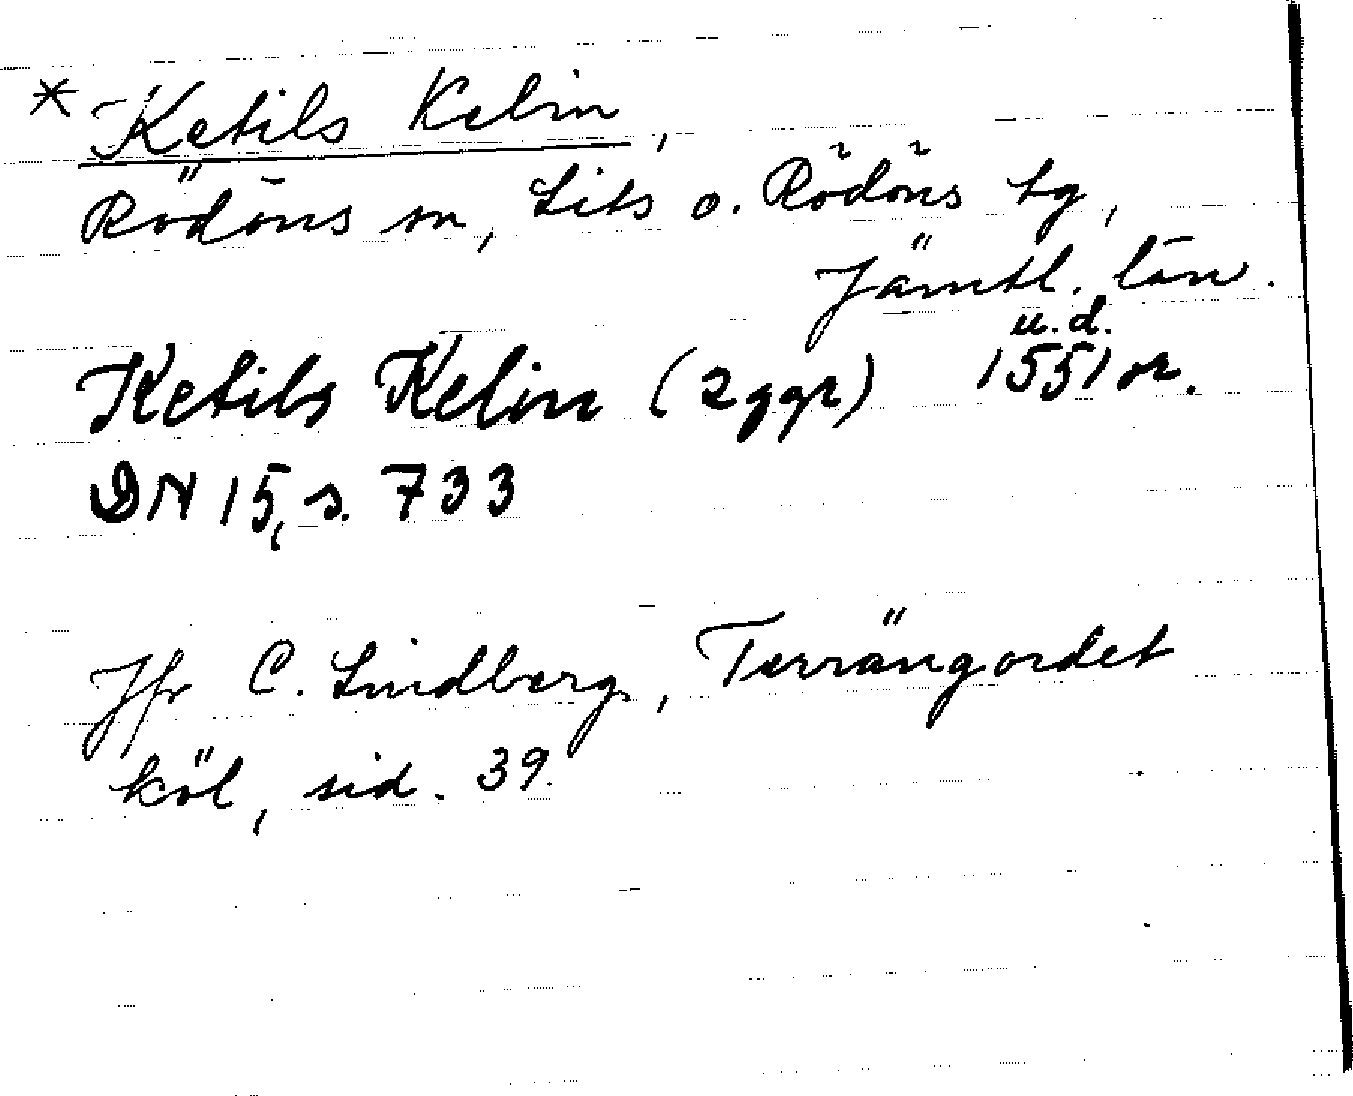 * Ketils Kelin,
Rödöns sn, Lits o. Rödöns tg,
Jämtl. län.
u.d.
Ketils Kelin (2 ggr) 1551 or.
DN 15, s. 733
Jfr C. Lindberg, Terrängordet
köl, sid. 39.